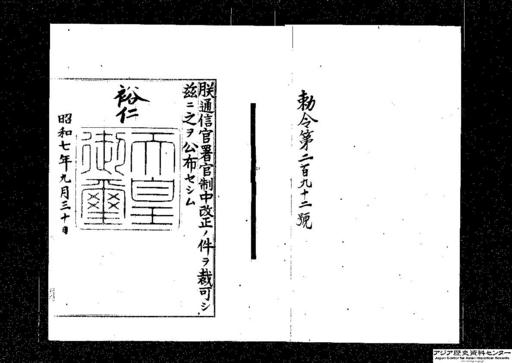 勅令第二百九十二號
朕通信官署官制中改正ノ件ヲ裁可シ
茲ニ之ヲ公布セシム
裕仁
天皇
御璽
昭和七年九月三十日
アジア歴史資料センター
Japan Center for Asian Historical Records